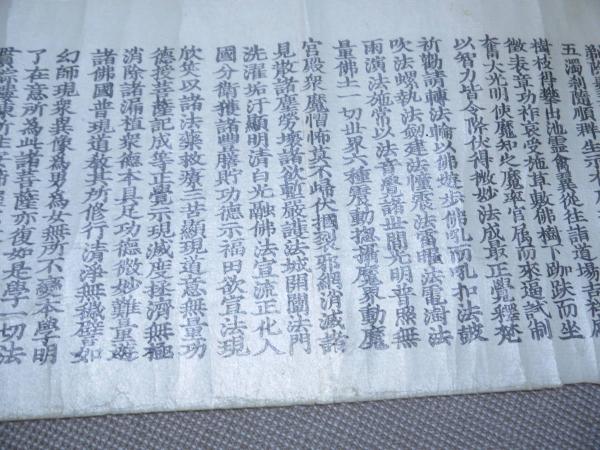 五濁刹隨順群生示
樹枝得攀出池靈禽翼從往詣道場吉祥感
徵表章功祚哀受施草敷佛樹下跏趺而坐
奮大光明使魔知之魔率官屬而來逼試制
以智力皆令降伏得微妙法成最正覺釋梵
祈勸請轉法輪以佛遊步佛吼而吼扣法皷
吹法螺執法劔建法幢震法雷曜法電澍法
雨演法施常以法音覺諸世閒光明普照無
量佛土一切世界六種震動揔攝魔界動魔
宮殿衆魔慴怖莫不歸伏摑裂邪網消滅諸
見散諸塵勞壞諸欲塹嚴護法城開闡法門
洗濯垢汙顯明清白光融佛法宣流正化入
國分衛獲諸豐膳貯功德示福田欲宣法現
欣笑以諸法藥救療三苦顯現道意無量功
德授菩薩記成等正覺示現滅度拯濟無極
消除諸漏植衆德本具足功德微妙難量遊
諸佛國普現道教其所修行清淨無穢譬如
幻師現衆異像為男為女無所不變本學明
了在意所為此諸菩薩亦復如是學一切法